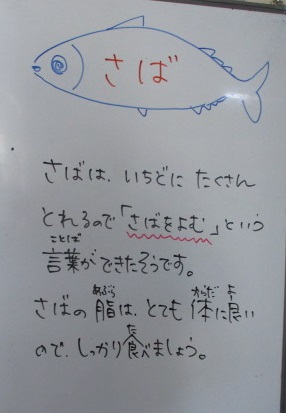 さば
さばは、いちどに たくさん
とれるので「さばをよむ」という
ことば
言葉ができたそうです。
あぶら からだ よ
さばの 脂は、とても 体に良い
た
ので、しっかり食べましょう。